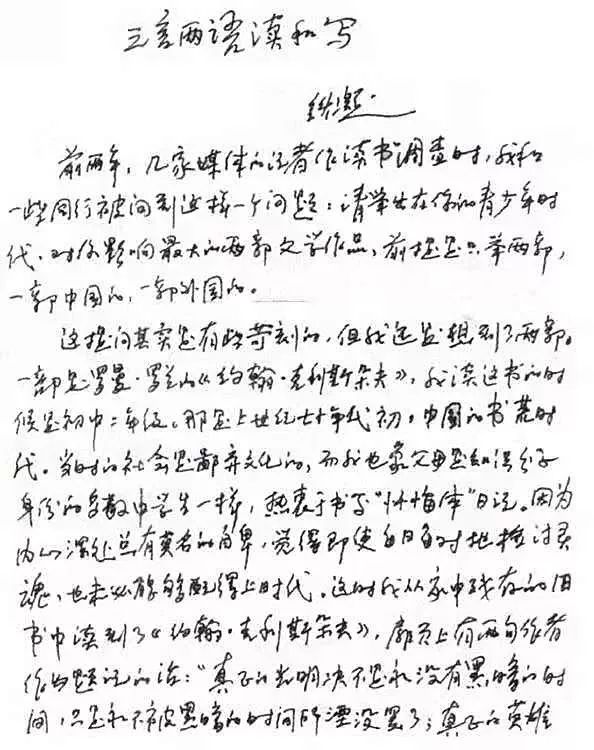 三言两语读和写
铁凝
前两年，几家媒体的记者作读书调查时，我和
一些同行被问到这样一个问题：请举出在你的青少年时
代，对你影响最大的两部文学作品，前提是只举两部，
一部中国的，一部外国的。
这提问其实是有些苛刻的，但我还是想到了两部。
一部是罗曼·罗兰的《约翰·克利斯朵夫》，我读这书的时
候是初中二年级。那是上世纪七十年代初，中国的书荒时
代。当时的社会是鄙弃文化的，而我也象父母是知识分子
身份的多数中学生一样，热衷于书写“忏悔体”日记。因为
内心深处总有莫名的自卑，觉得即使每日每时地检讨灵
魂，也未必能够配得上时代。这时我从家中残存的旧
书中读到了《约翰·克利斯朵夫》，扉页上有两句作者
作为题记的话：“真正的光明决不是永没有黑暗的时
间，只是永不被黑暗的时间所湮没罢了；真正的英雄